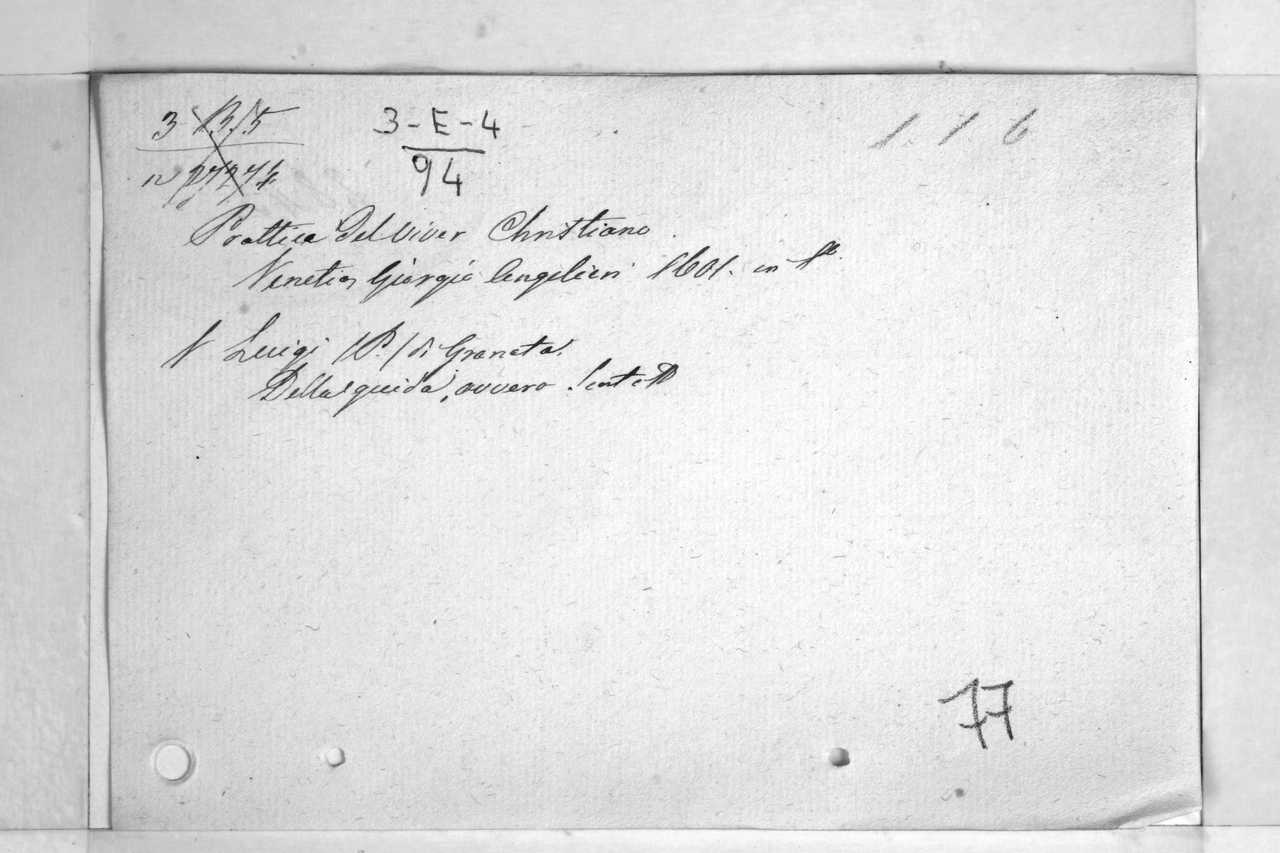 3 13/5
3-E-4
1. 1. 6
94
Prattica del viver Christiano
Venetia Giorgio Angelieri 1601. in
V Luigi (P.) di Granata.
Della guida, ovvero
77